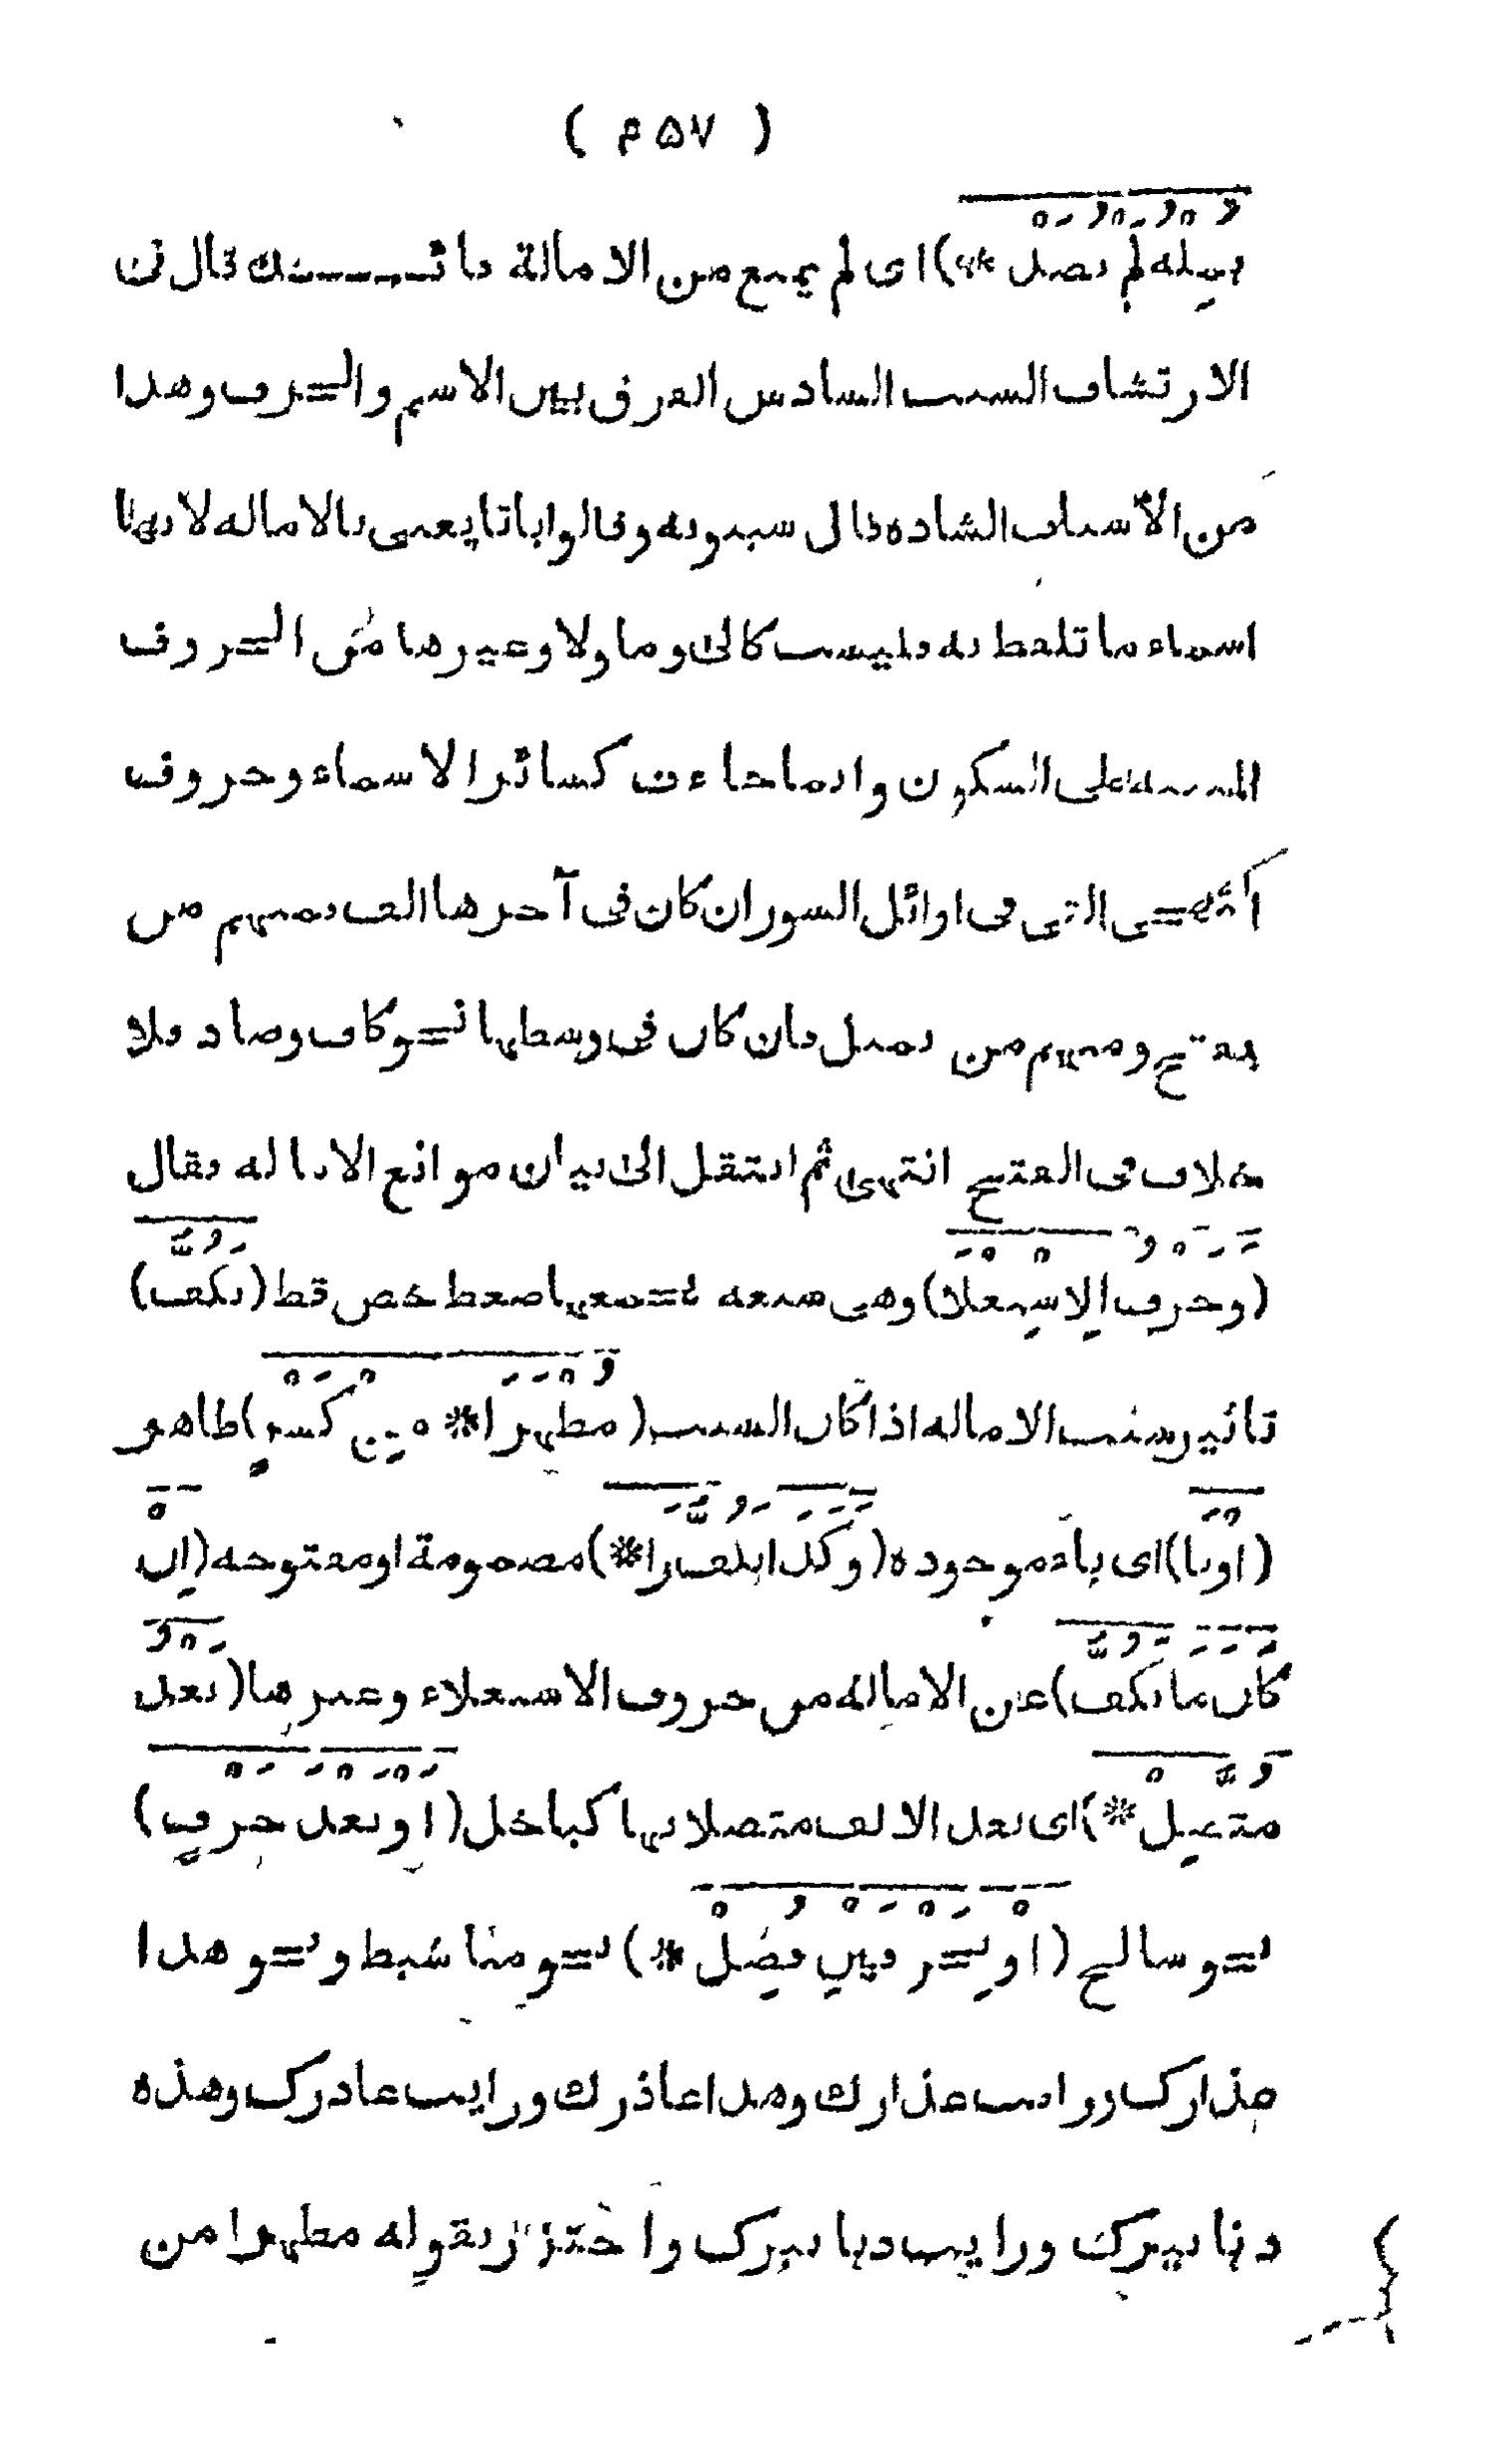 ( ۴۵۷ )
يمله لم يصد *) اى لم يمنع من الامالة مانـــــــع قال فى
الارتشاف السبب السادس الفرق بين الاسم والحرف وهذا
من الأسباب الشاذه قال سيبويه وقالوا باتا يعنى بالاماله لانها
اسماء ما تلفظ به وليست كالى وما ولا وغيرها من الحروف
المبنيه على السكون وانما جاءت كسائر الاسماء وحروف
التهجى التى فى اوائل السور ان كان فى آخرها الف فمنهم من
يفتح ومنهم من يميل وان كان فى وسطها نحو كاف وصاد فلا
خلاف فى الفتح انتهى ثم انتقل الى بيان موانع الاماله فقال
(وحرف الاستعلا) وهى سبعه يجمعها ضغط خص قظ (يكف)
تاثير سبب الاماله اذا كان السبب (مظهرا * من كسر) ظاهر
(اويا) اى ياء موجوده (وكذا يكف را *) مضمومة او مفتوحه (ان
كان ما يكف) عن الاماله من حروف الاستعلاء وغيرها (بعد
متصل *) اى بعد الالف متصلا بها كباخل (او بعد حرف)
نحو سالح (او بحرفين فصل *) نحو مناشيط ونحو هذا
عذارك ورايت عذارك وهذا عاذرك ورايت عاذرك وهذه
دنانيرك ورايت دنانيرك واحترز بقوله مظهرا من